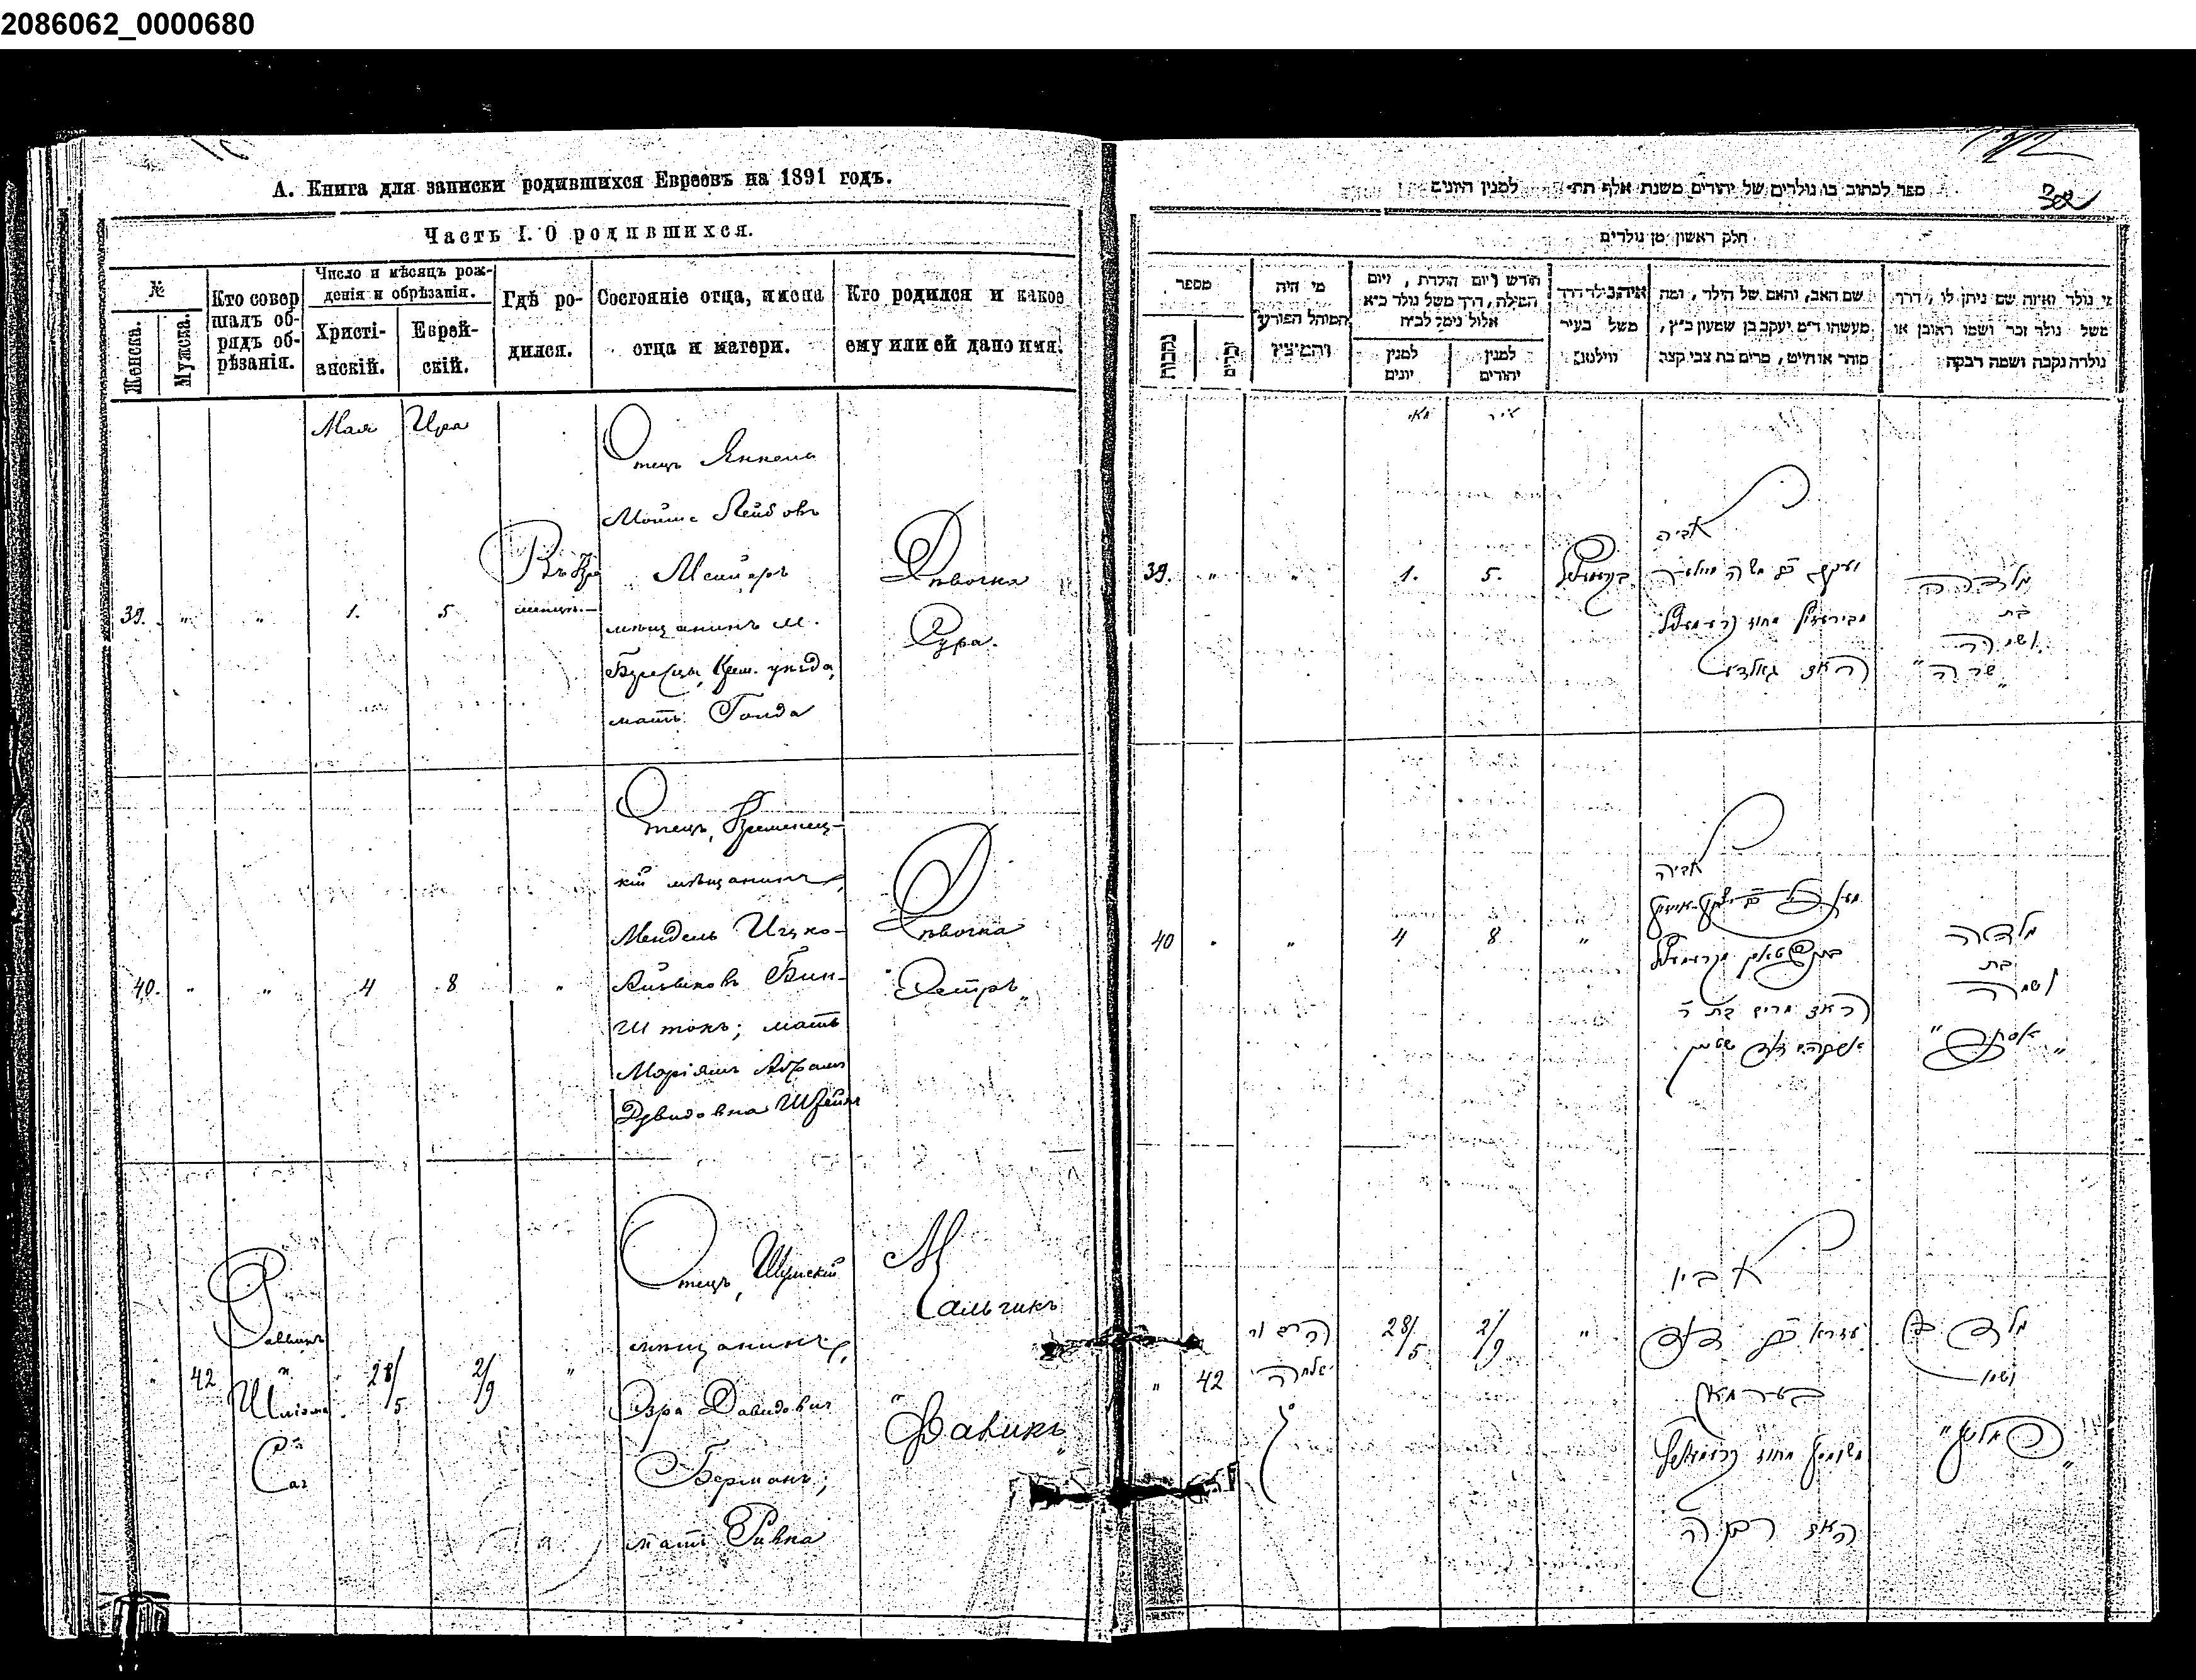 2086062_0000680
А. Книга для записки родившихся Евреевъ на 1891 годъ.
Часть I. О родившихся.
№
Женска.
Мужска.
Кто совер
шалъ об-
рядъ об-
рѣзанія.
Число и мѣсяцъ рож-
денія и обрѣзанія.
Христі-
анскій.
Еврей-
скій.
Гдѣ ро-
дился.
Состояніе отца, имена
отца и матери.
Кто родился и какое
ему или ей дано имя.
Мая
Ира
39. " " 1. 5
Въ Кре
менцѣ.
Отецъ Янкель
Мойше Лейбовъ
Мейлеръ
мѣщанинъ м.
Бережцы, Крем. уѣзда,
мать Голда
Дѣвочка
Сура.
40. " " 4 8 "
Отецъ, Кременец-
кій мѣщанинъ,
Мендель Ицко-
Айзиковъ Бин-
штокъ; мать
Маріямъ Абрамъ
Дувидовна Штейнъ
Дѣвочка
"Эстръ"
" 42
Раввинъ
и
Шліома
Саг
28/5 2/9 "
Отецъ, Шумскій
мѣщанинъ,
Эзра Давидович
Берманъ;
мать Ривка
Мальчикъ
"Фаликъ"
ספר לכתוב בו נולדים של יהודים משנת אלף תת׳ למנין היונים
חלק ראשון מן נולדים
מספר
נקבות
זכרים
מי היה
המוהל הפורע
והמוצץ
חודש ויום הולדת, ויום
המילה, דרך משל נולד כ״א
אלול נימל כ״ח
למנין
יונים
למנין
יהודים
איה נילד דרך
משל בעיר
ווילנא
שם האב, והאם של הילד, ומה
מעשהו ד״מ יעקב בן שמעון כ״ץ,
סוחר או חייט, מרים בת צבי קצב
מי נולד ואיזה שם ניתן לו, דרך
משל נולד זכר ושמו ראובן או
נולדה נקבה ושמה רבקה
מאי
אייר
39. " " 1. 5.
בקרעמעניץ
אביה
יעקב בן משה
האם גאלדע
ילדה
בת
ושמה
"שרה"
40 " " 4 8 "
אביה
האם מרים בת ר׳
ילדה
בת
ושמה
"אסתר"
" 42
הרב ור׳
שלמה
28/5 2/9 "
אביו
עזרא בן דוד
בערמאן
האם רבקה
ילד בן
ושמו